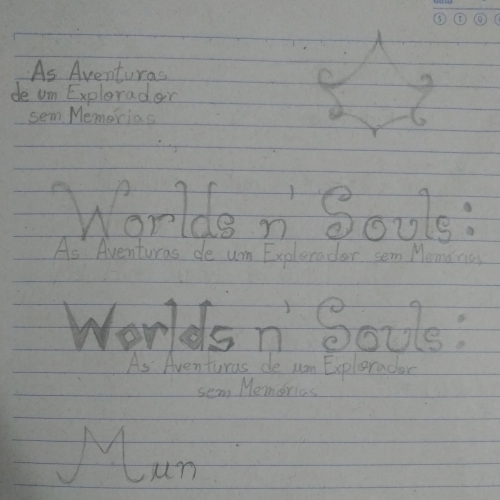 As Aventuras
de um Explorador
sem Memórias
Worlds n' Souls:
As Aventuras de um Explorador sem Memórias
Worlds n' Souls:
As Aventuras de um Explorador
sem Memórias
Mun